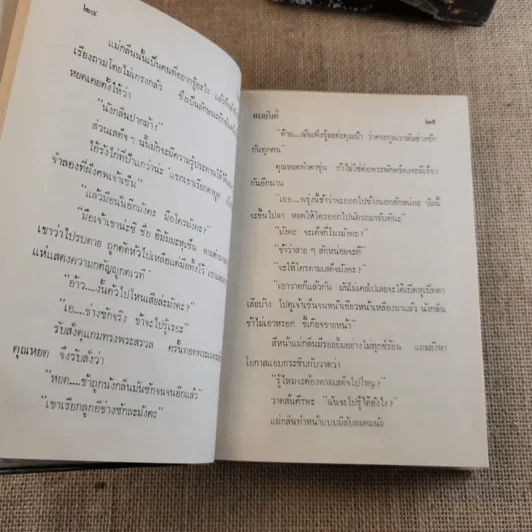 ๒๔
แม่กลิ่นนั้นเป็นคนที่อยากรู้อะไร แล้ว
เรื่องถามโดยไม่เกรงกลัว ซึ่งเป็น
หยดเคยตั้งให้ว่า
"นังกลิ่นปากม้า!"
ส่วนเสด็จฯ นั้นมักจะมีความรู้ประทานให้
"แล้วมือนั้นอีกมังคะ มือใครมังคะ?"
เขาว่าไปรบตาย ถูกตัดหัวไปเหลือแต่มือทิ้งไว้
แห่แสดงความกตัญญูกตเวที"
"อ้าว....งั้นตัวไปไหนเสียล่ะมังคะ?"
"เอ....ช่างซักจริง ข้าจะไปรู้เรอะ"
รับสั่งดุแกมทรงพระสรวล ครั้นทอดพระเนตร
คุณหยด จึงรับสั่งว่า
"หยด....ข้าถูกนังกลิ่นมันซักจนจนอีกแล้ว"
"เขาเรียกลูกอีช่างซักละมังคะ"
ทมยันตี
๒๕
"ค้าย....ฉันเพิ่งรู้ละค่ะคุณป้า ว่าตระกูลเรามันช่างซัก
กันทุกคน"
คุณหยดทำตาขุ่น ถ้าไม่ใช่ต่อพระพักตร์คงจะมีเรื่อง
กันอีกนาน
"เออ....พรุ่งนี้ข้าว่าจะออกไปข้างนอกสักหน่อย
จะขึ้นไปลา หยดให้ใครออกไปบัตรถมารับทีนะ"
"มังคะ จะเด็จกี่โมงมังคะ"
"ข้าว่าสาย ๆ สักหน่อยจะดี"
"จะให้ใครตามเสด็จมังคะ?"
"เอาวาดก็แล้วกัน มันไม่เคยไปเลยจะได้เปิดหูเปิดตา
เสียบ้าง ไปดูเจ้าเซ็นจนหน้าเขียวหน้าเหลืองมาแล้ว นังกลิ่น
ข้าไม่เอาหรอก ขี้เกียจขายหน้า"
สีหน้าแม่กลิ่นมีรอยยิ้มอย่างไม่ทุกข์ร้อน แถมยังหา
โอกาสแอบกระซิบกับวาดว่า
"รู้ไหมจะต้องตามเสด็จไปไหน?"
วาดสั่นศีรษะ "ฉันจะไปรู้ได้ยังไง?"
แม่กลิ่นทำหน้าแบบมีลับลมคมนัย